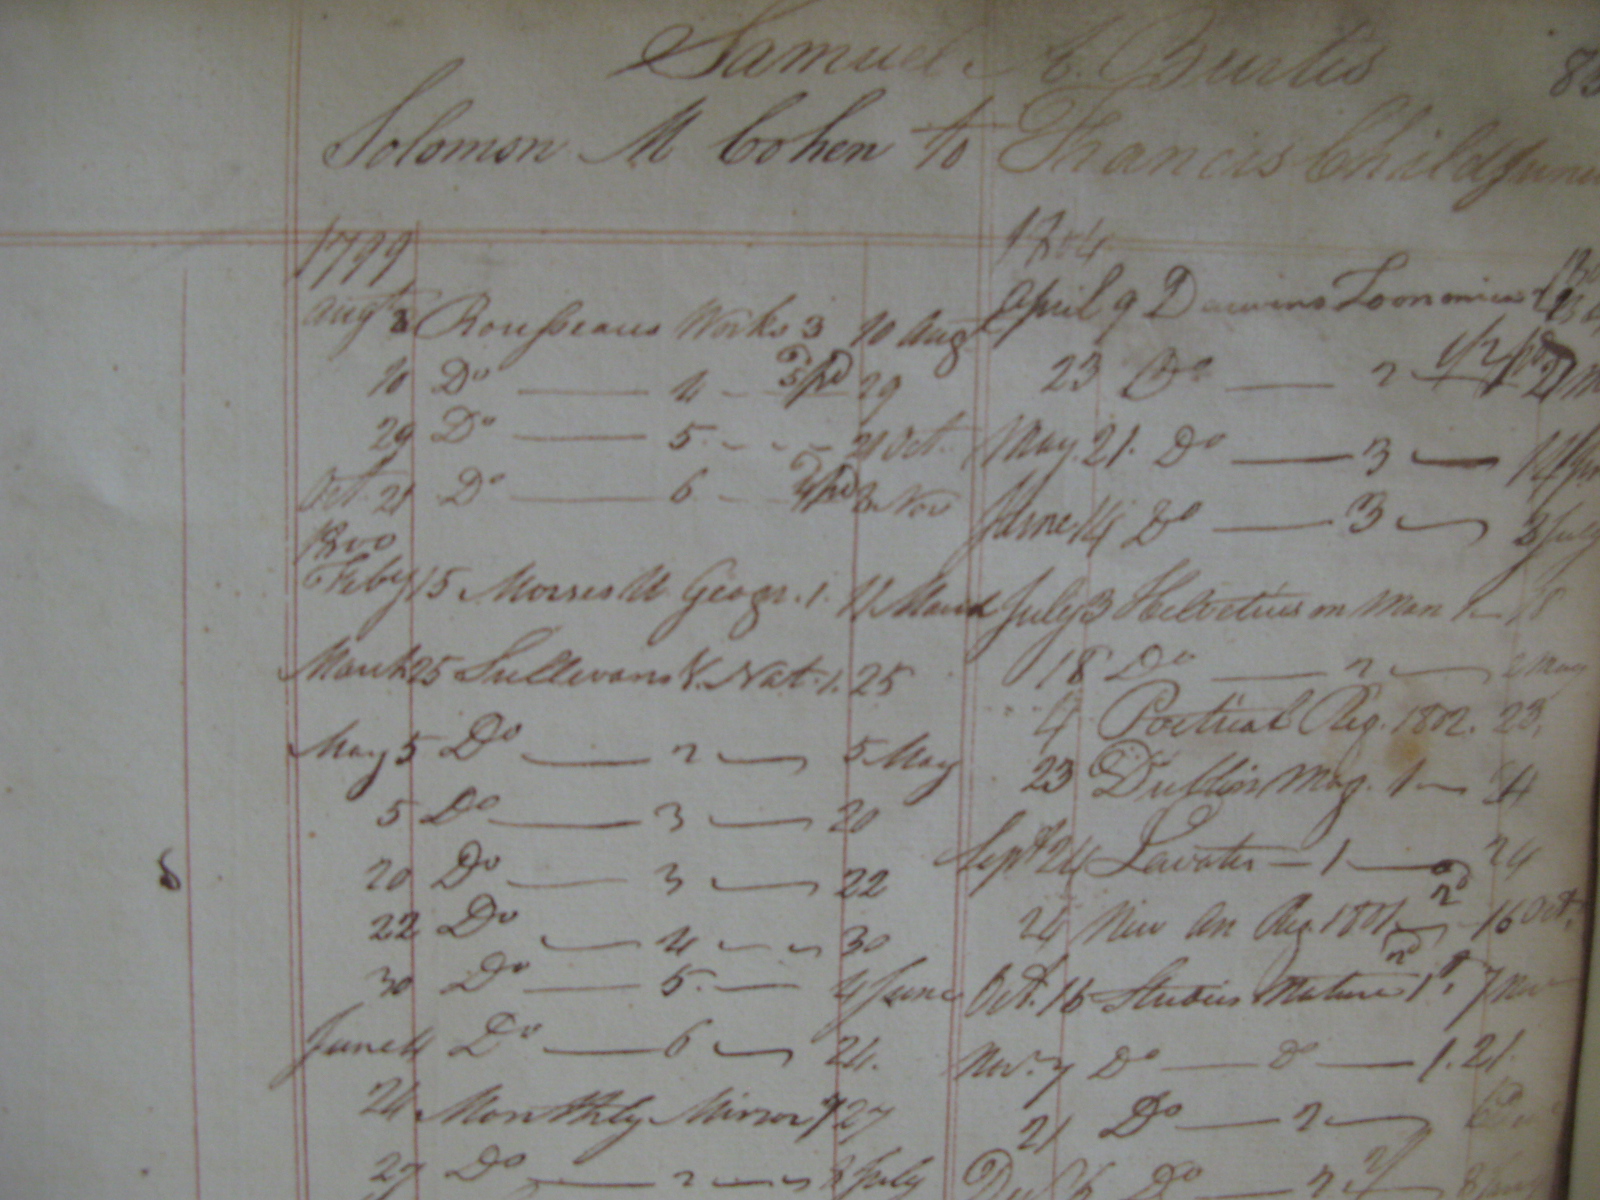 Samuel A. Burtis
Solomon M Cohen to Francis Childs Junr
1799
Augt 8 Rousseaus Works 3 10 Aug
10 Do — 4 - 29
29 Do — 5 - - - 21 Oct.
Oct. 21 Do — 6 Nov
1800
Feby 15 Morses U. Geogr. 1. 11 March
March 25 Sullivans V. Nat. 1. 25
May 5 Do — 2 — 5 May
5 Do — 3 — 20
20 Do — 3 — 22
22 Do — 4 - - - 30
30 Do — 5 — 4 June
June 4 Do — 6 — 24.
24 Monthly Mirror 27
27 Do — 2 — July
1804
April 9 Darwins Zoonomia
23 Do — 2
May 21. Do — 3 —
June 14 Do — 3 — 3 July
July 3 Helvetius on Man 1 — 18
18 Do — 2 —
4 Poetical Reg. 1802. 23,
23 Dublin Mag. 1 —
Sept 24 Lavater — 1 — 24
24 New An Reg. 1801 — 16 Oct.
Oct. 16 Studies Nature 1 7 Nov
Nov. 7 Do — Do — 1. 21.
21 Do — 2 —
Do — 2